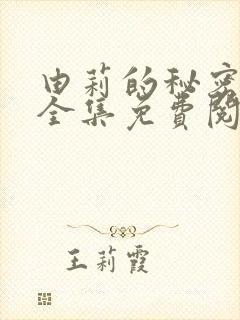 由莉的秘密
全集免费阅
王莉霞